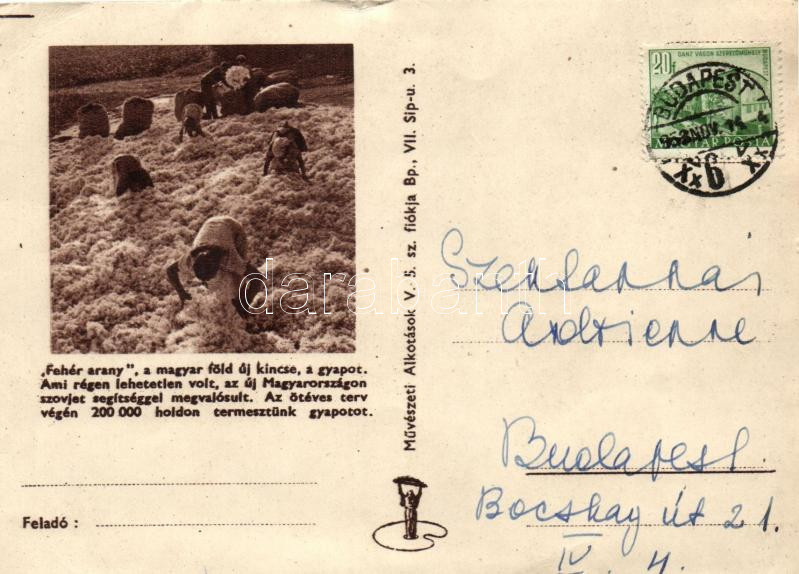 „Fehér arany”, a magyar föld új kincse, a gyapot.
Ami régen lehetetlen volt, az új Magyarországon
szovjet segítséggel megvalósult. Az ötéves terv
végén 200 000 holdon termesztünk gyapotot.
Feladó :
Művészeti Alkotások V. 5. sz. fiókja Bp., VII. Sip-u. 3.
20f
GANZ VAGON SZERELŐMŰHELY BUDAPEST
MAGYAR POSTA
BUDAPEST
NOV.
6
darabanth
Szentannai
Adrienne
Budapest.
Bocskay út 21.
IV. 4.